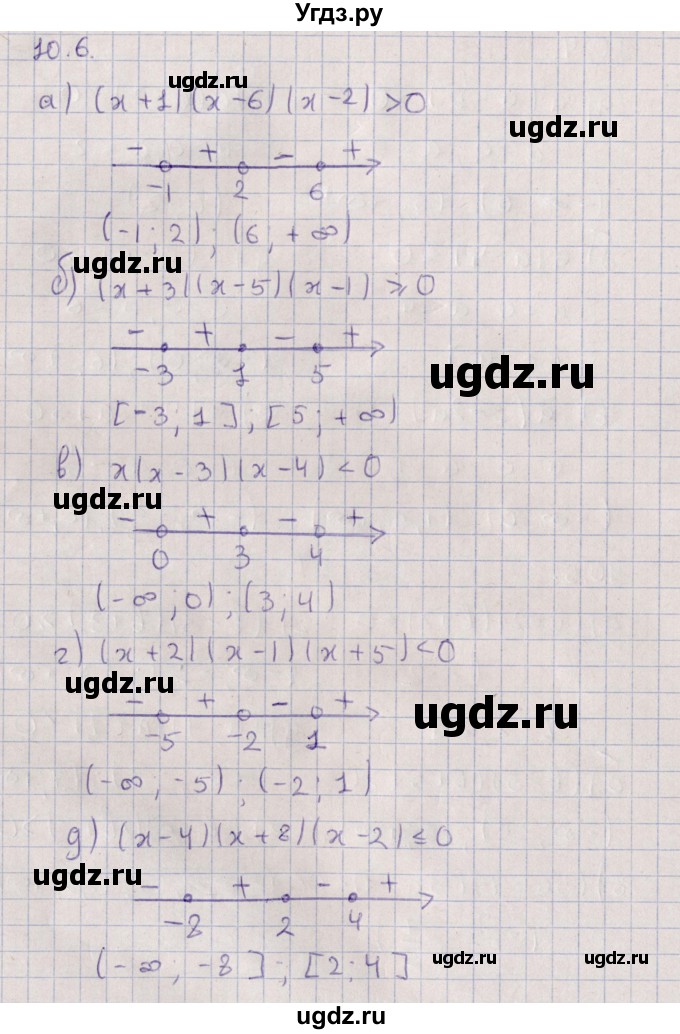 Угдз.ру
10.6.
ugdz.ru
а) (x+1)(x-6)(x-2)>0
ugdz.ru
- + - +
-1 2 6
(-1; 2); (6; +∞)
ugdz.ru
б) (x+3)(x-5)(x-1)⩾0
- + - +
ugdz.ru
-3 1 5
[-3; 1]; [5; +∞)
в) x(x-3)(x-4)<0
ugdz.ru
- + - +
0 3 4
(-∞; 0); (3; 4)
г) (x+2)(x-1)(x+5)<0
ugdz.ru
- + - +
ugdz.ru
-5 -2 1
(-∞; -5); (-2; 1)
д) (x-4)(x+8)(x-2)≤0
ugdz.ru
- + - +
-8 2 4
(-∞; -8]; [2; 4]
ugdz.ru ugdz.ru
ugdz.ru